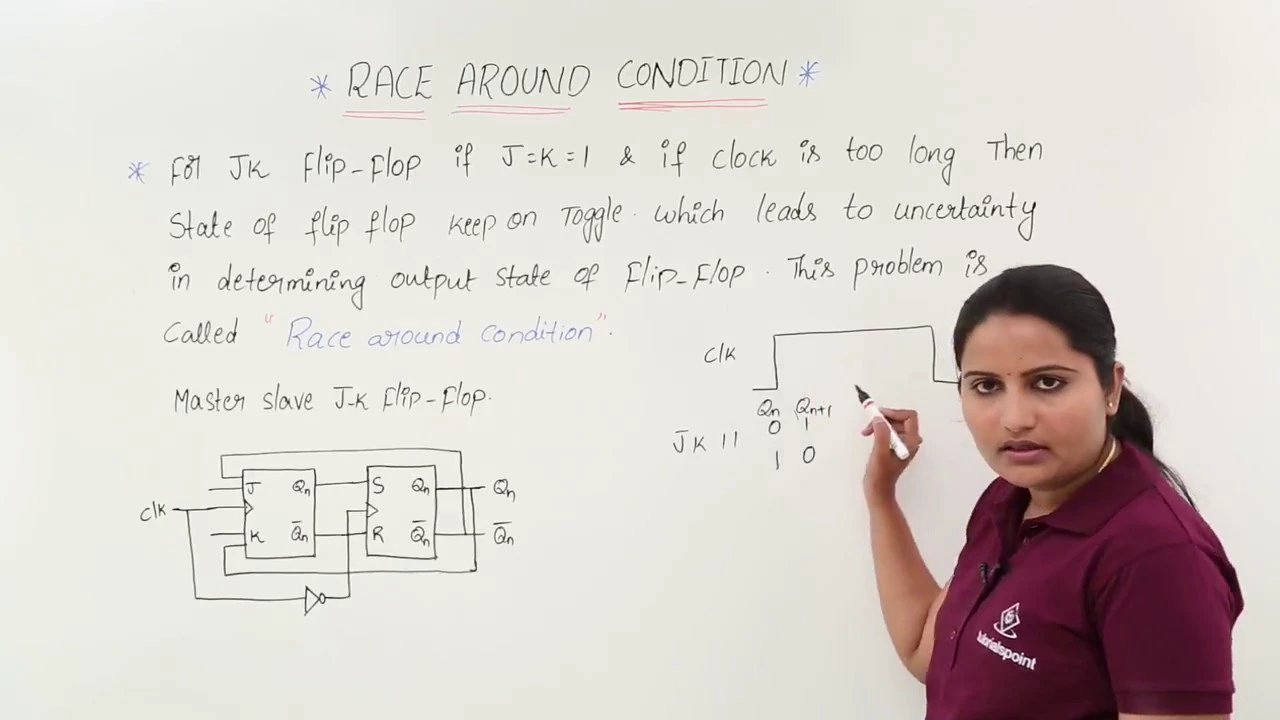 * RACE AROUND CONDITION *
* For JK Flip-Flop if J=K=1 & if clock is too long Then
State of flip flop keep on Toggle. which leads to uncertainty
in determining output state of Flip-Flop. This problem is
Called "Race around condition".
Clk
Master slave J-K Flip-Flop.
Qn Qn+1
JK 11 0 1
1 0
J Qn S Qn Qn
Clk
K Q̅n R Q̅n Q̅n
tutorialspoint